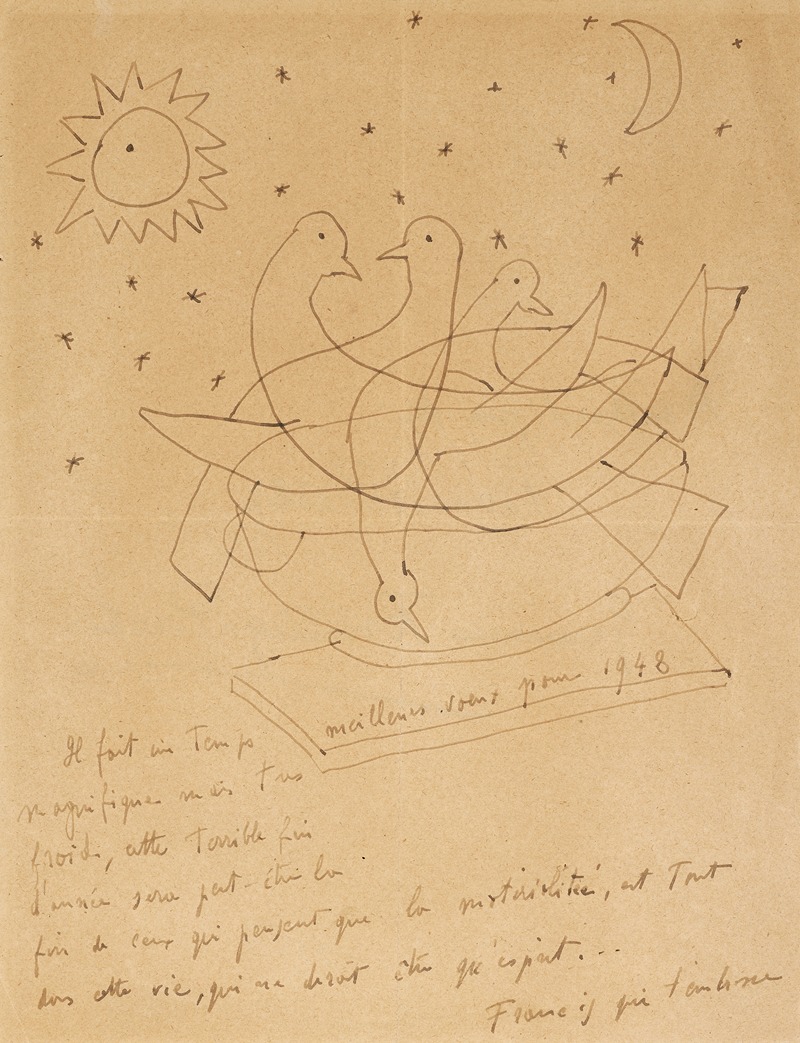 meilleurs vœux pour 1948
Il fait un Temps
magnifique mais très
froid, cette Terrible fin
d'année sera peut-être la
fin de ceux qui pensent que la matérialitée, est Tout
dans cette vie, qui ne devrait être qu'esprit...
Francis qui t'embrasse